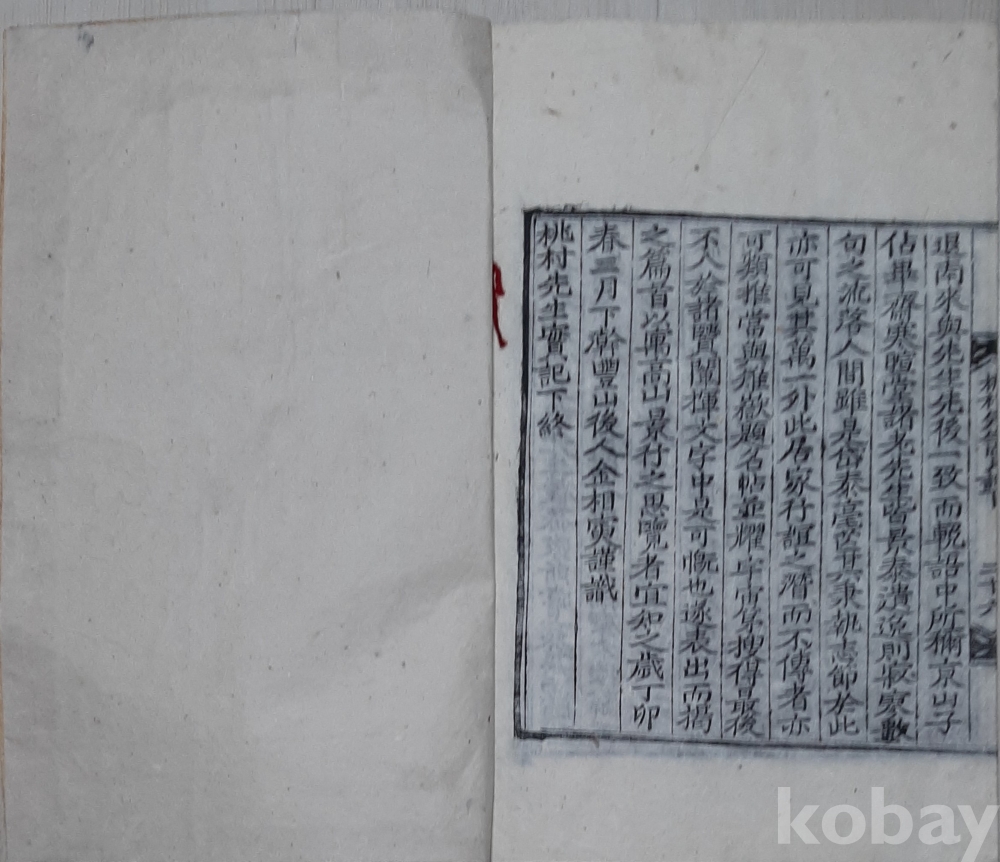 退陶來與先生先後一致而輓詔中所稱京山子
佔畢齋寒暄堂諸老先生皆貝泰漬逸則寂寥數
句之流落人間雖是岱泰毫芒其秉執志節於此
亦可見其萬一外此居家行誼之潛而不傳者亦
可類推當與雅歡題名帖並耀宇宙京搜得最後
不入於諸賢闡揮文字中是可慨也遂表出而揭
之篇首以寓高山景行之思覽者宜知之歲丁卯
春三月下澣豐山後人金相寅謹識
桃村先生實記下終
kobay